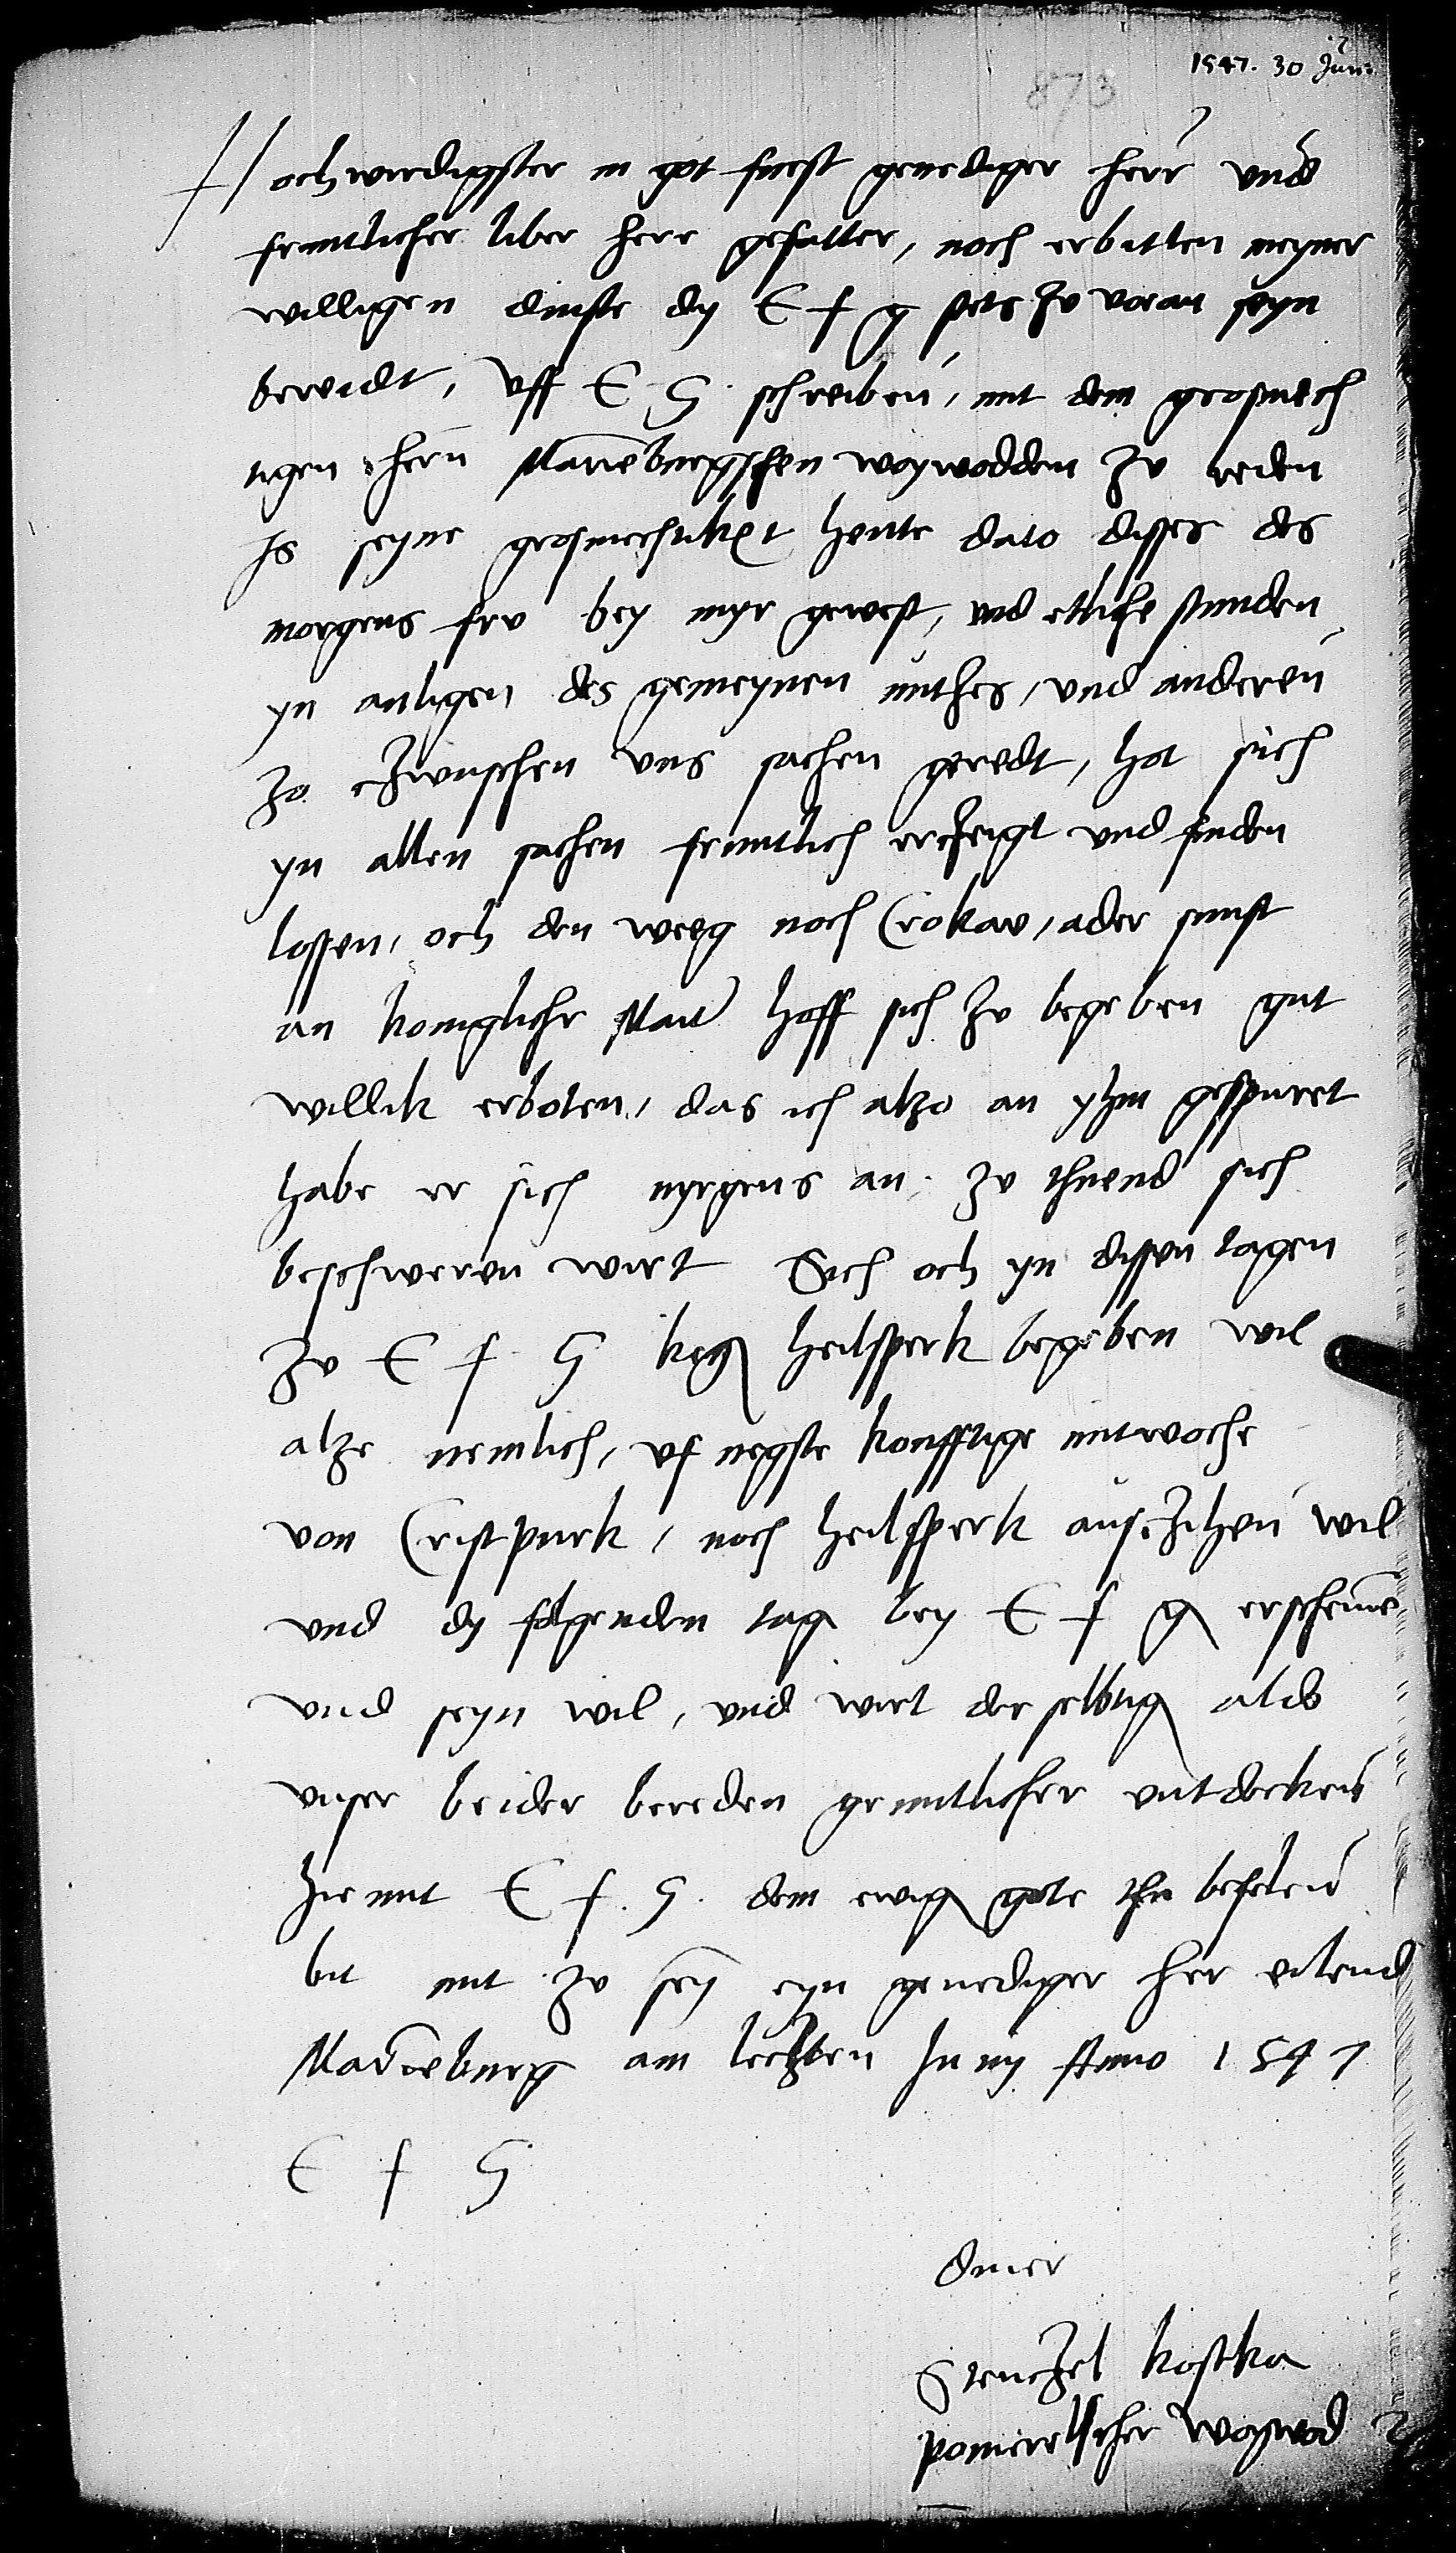 1547. 30 Juni
873
Hochwirdigster in got furst genediger herr und
fruntlicher liber herr gefatter, noch erbitten meyner
willigen dinste dy E f g stets zv voran seyn
bereidt, Uff E G schreiben, mit dem grosmech
tigen hern Marieburgschen woywodden zv reden
Is seyne grosmechtiket heute dato disses des
morgens frv bey myr gewest, und etliche stunden
yn anligen des gemeynen nutzes, und anderen
zo czwuschen uns sachen geredt, hot sich
yn allen sachen fruntlich erczeigt und finden
lossen, och den weeg noch Crokav, ader sunst
an koniglichr Mait hoff sich zv begeben gut
willik erboten, das ich alzo an yhm gespuret
habe er sich nyrgens an zv thuend sich
beschweren wirt Sich och yn dissen tagen
zv E f G keg heilsperk begeben wil
alze nemlich, uf negste konfftige mitwoche
von Cristpurk, noch heilssperk ausczihen wil
und dy folgenden tag bey E f g erscheinen
und seyn wil, und wirt der selbtig aldo
unser beider bereden gruntlicher entdecken
hie mit E f. G. dem ewig gote thu befelen
bit mit zv sey eyn genediger her eilend
Marieburg am leczten Juny Anno 1547
E f G
diner
Stenczel kostka
pomerelscher woywod